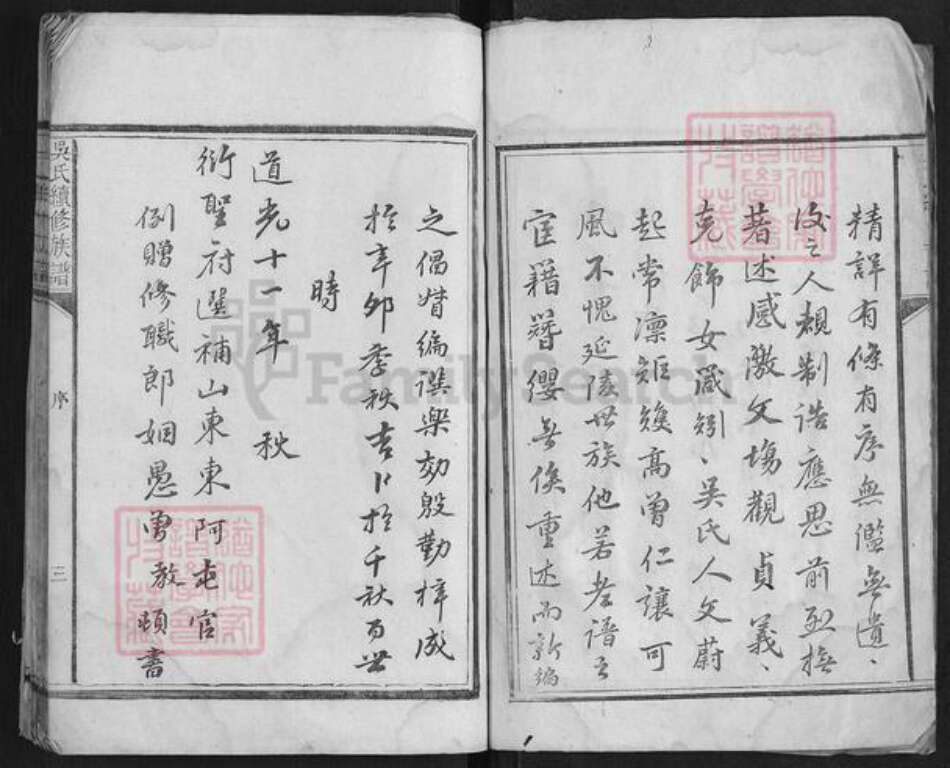 精詳有條有序無濫無遺、
後之人覩制誥應思前烈撫
著述感激文塲觀貞義、
堯飾女箴矧、吳氏人文蔚
起常凜矩矱高曾仁讓可
風不愧延陵世族他若考譜
宦籍簪纓無俟重述而新編
之偶揩編選樂効殷勤梓成
於辛卯季秋吉卜於千秋百世
時
道光十一年 秋
衍聖府選補山東東阿屯官
例贈修職郎姻愚曾教頓書
吳氏續修族譜
序
三
FamilySearch